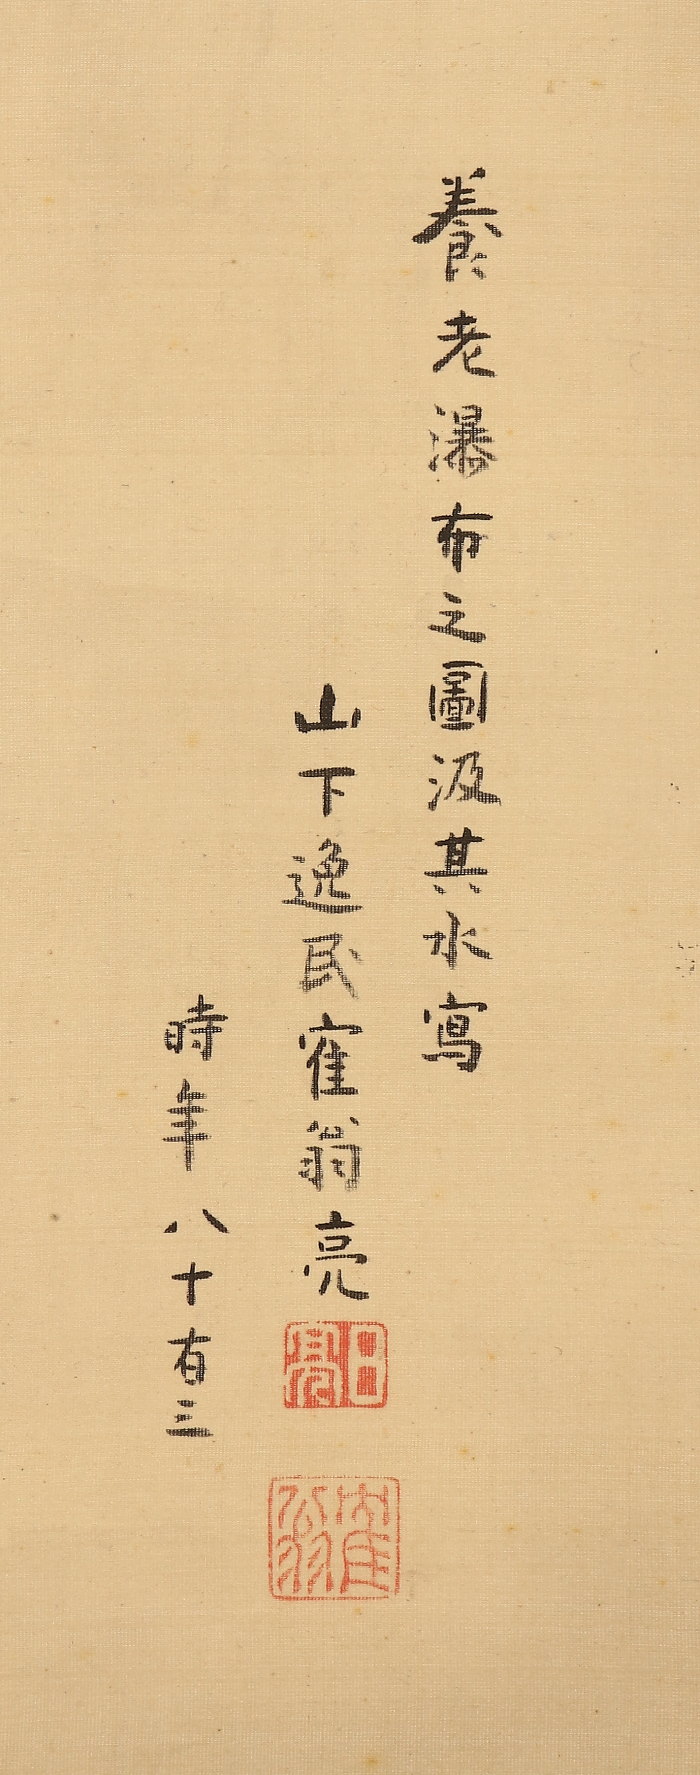 養老瀑布之圖汲其水寫
山下逸民寉翁亮
時年八十有三
日亮
寉翁